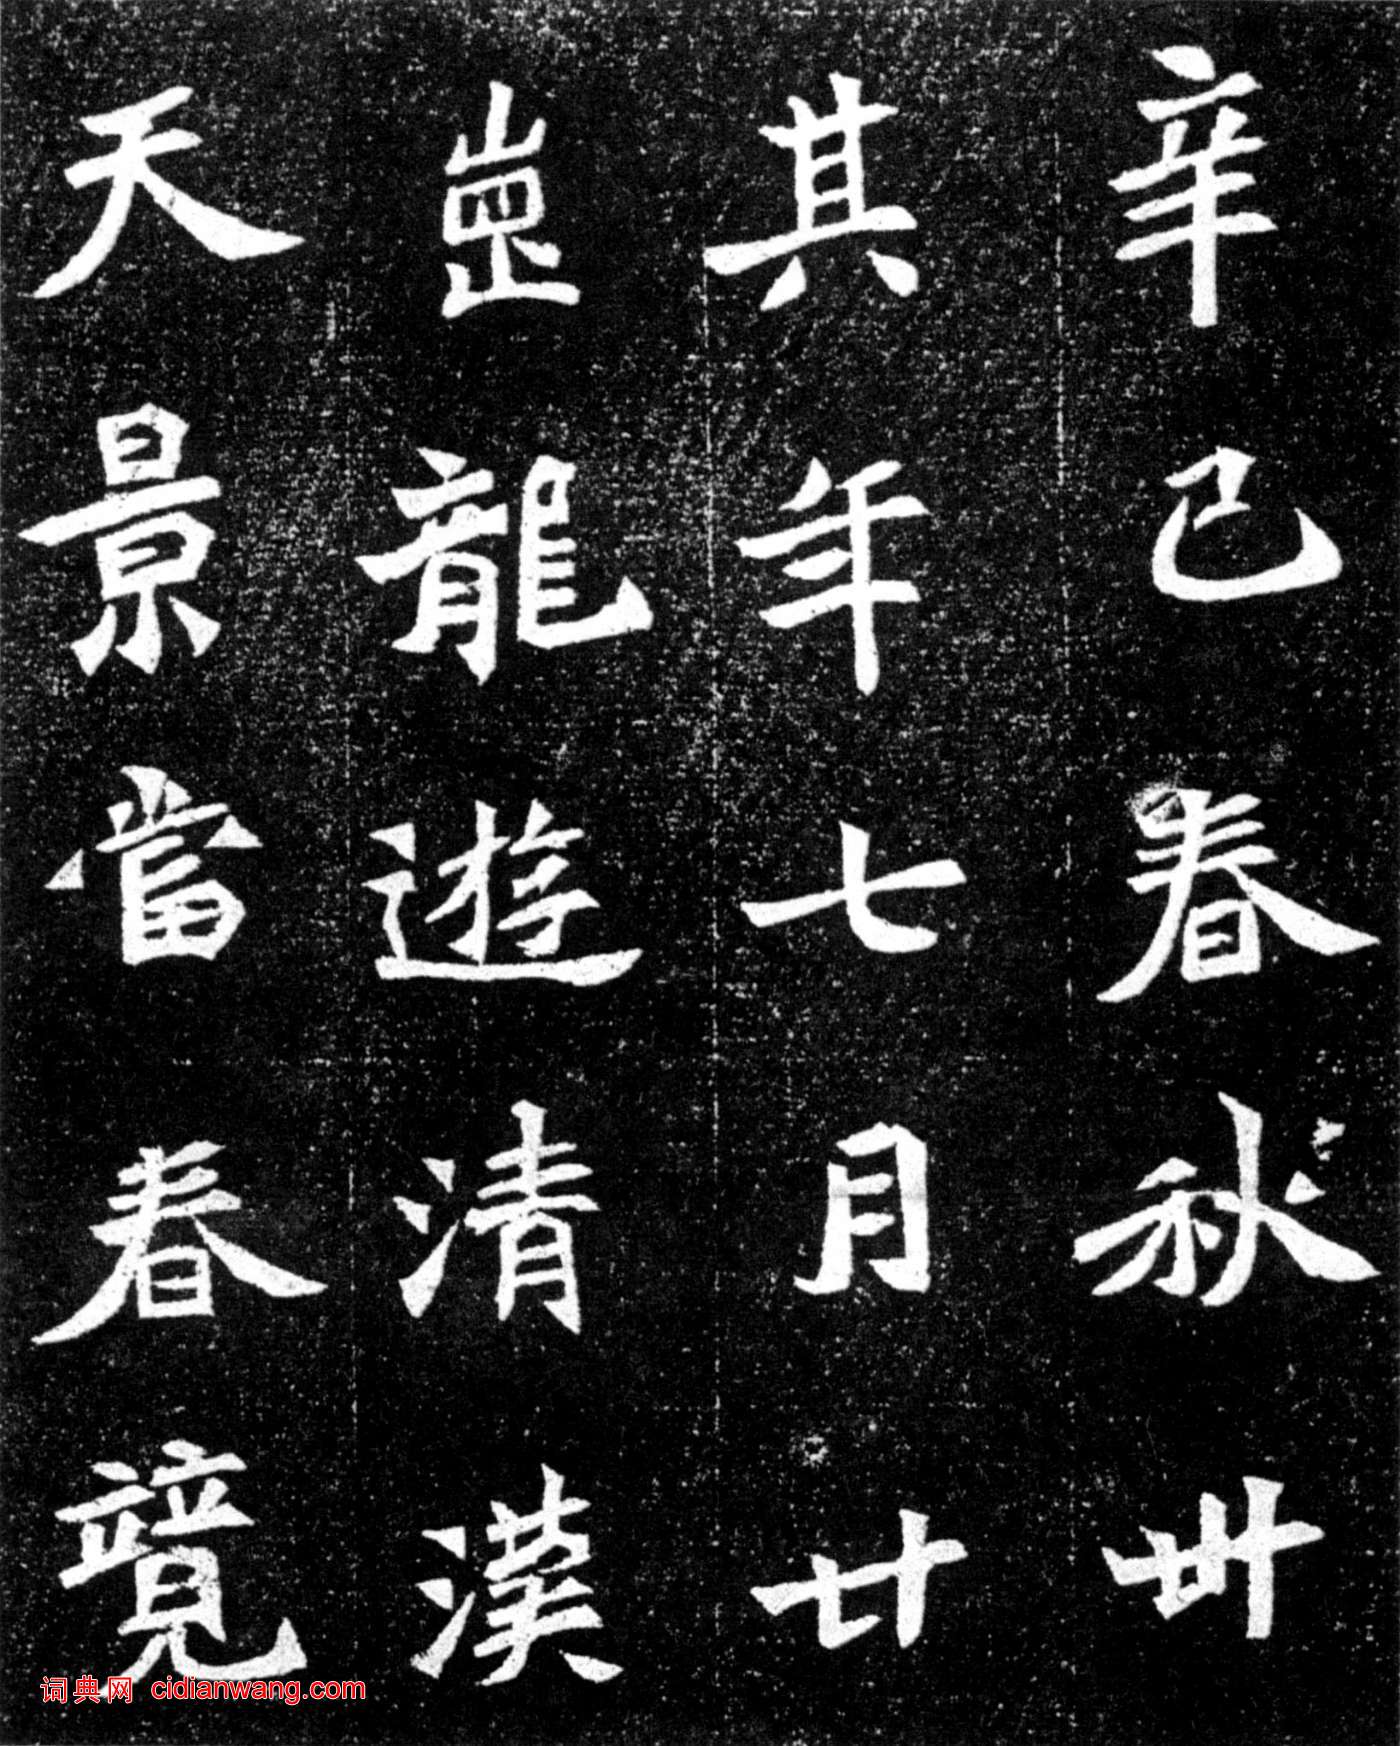 辛巳春秋卅
其年七月廿
崗龍遊清漢
天景當春競
词典网 cidianwang.com